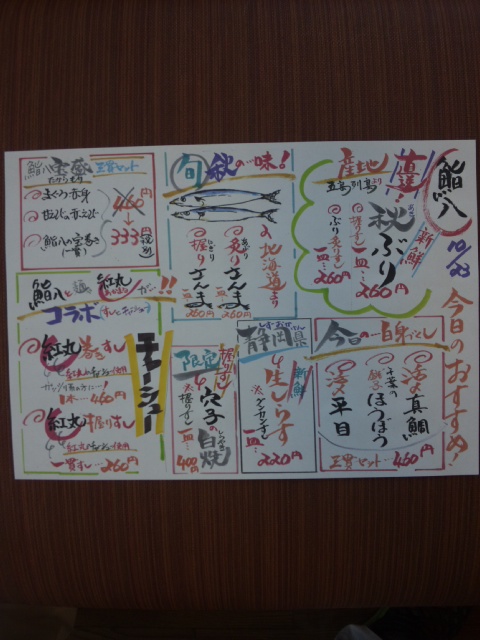 鮨八
10/23
今日のおすすめ!
産地
直送!
五島列島より
新鮮
秋ぶり
握りずし
一皿…260円
ぶり
一皿…260円
旬秋の一味!
北海道より
炙りさんま
一皿260円
握りさんま
一皿260円
鮨八宝盛
三貫セット
まぐろ赤身
鮨八の宝巻き
(一番)
460円
↓
333円
(税別)
鮨八と紅丸
コラボ
!!
チャーシュー
紅丸巻きずし
一本…460円
紅丸握りずし
一貫ずし…260円
限定
穴子の白焼
※握りずし
一皿…400円
静岡県
新鮮
生しらす
※グンカンずし
一皿…220円
今日の一白身づくし
活〆真鯛
千葉の
ほうぼう
活〆平目
三貫セット…460円